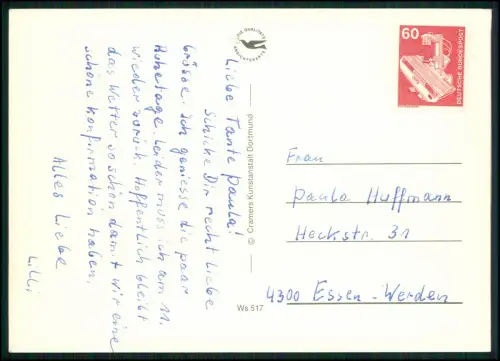 Liebe Tante Paula!
Schicke Dir recht liebe
Grüsse. Ich geniesse die paar
Ruhetage. Leider muss ich am 11.
wieder zurück. Hoffentlich bleibt
das Wetter so schön damit wir eine
schöne Konfirmation haben.
Alles Liebe
Lilli
© Cramers Kunstanstalt Dortmund
Ws 517
60
DEUTSCHE BUNDESPOST
Frau
Paula Huffmann
Heckstr. 31
4300 Essen-Werden